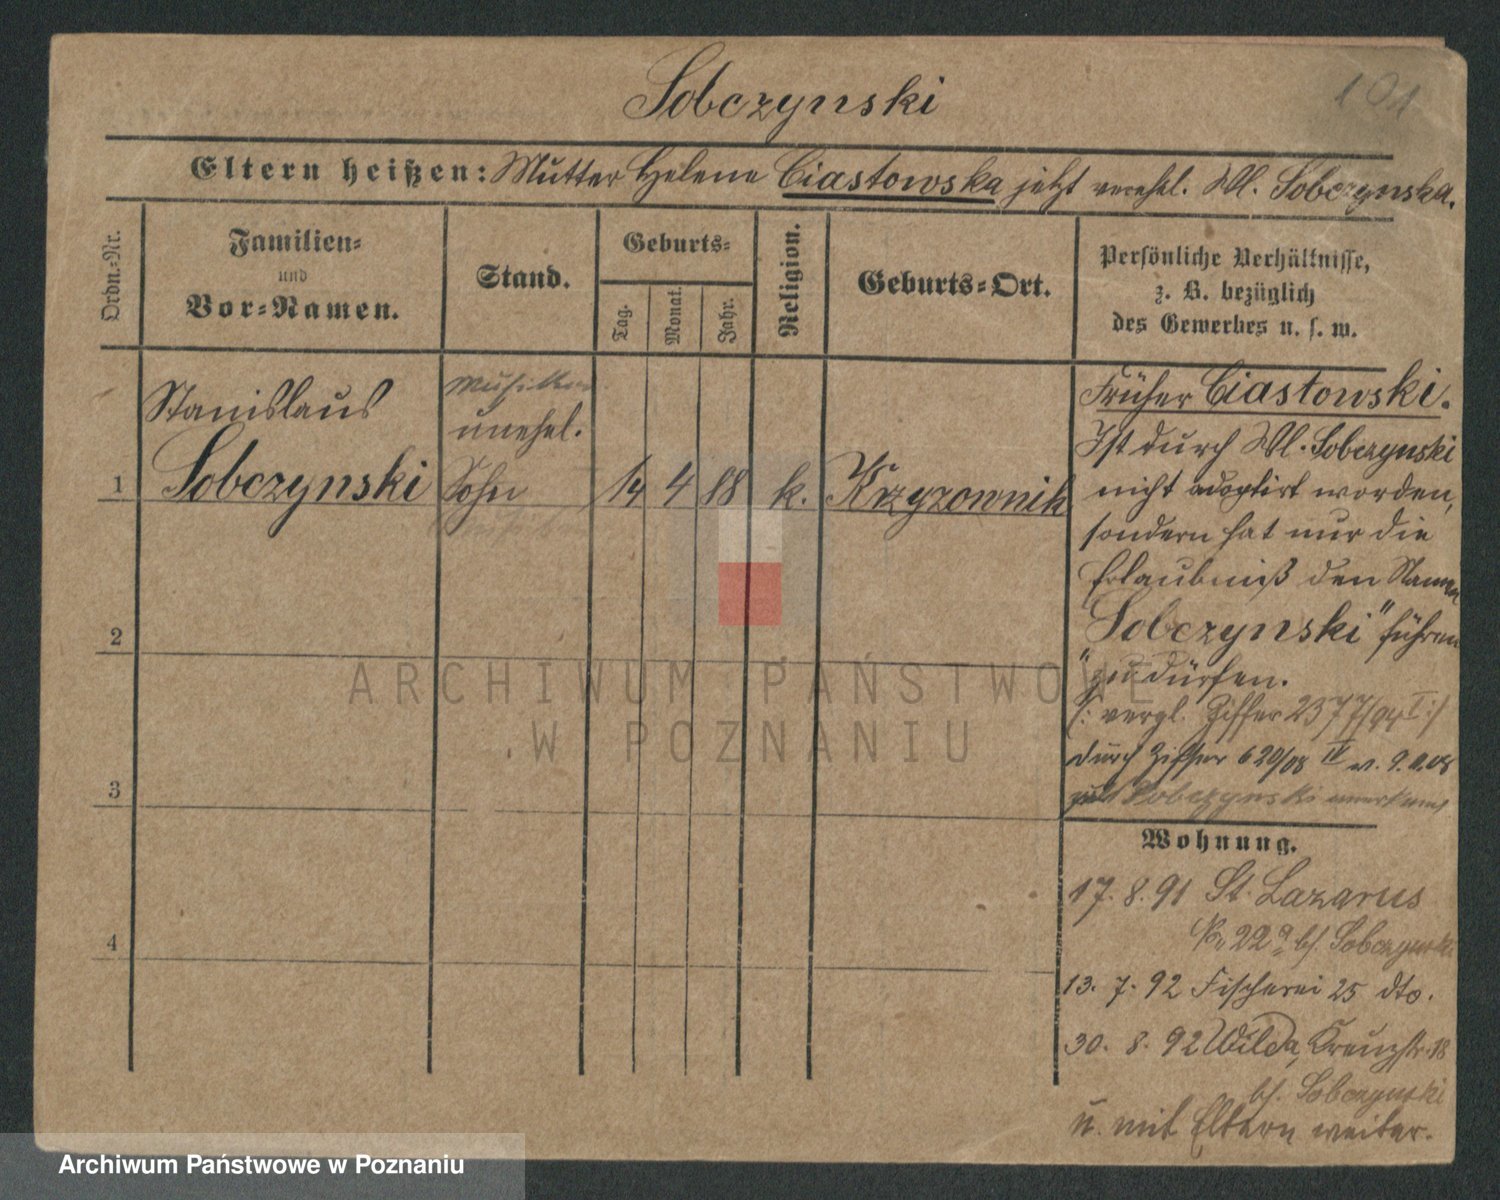 Sobczynski
101
Eltern heißen: Mutter Helene Ciastowska jetzt verehel. Wl. Sobczynska.
Ordn.-Nr.
Familien-
und
Vor-Namen.
Stand.
Geburts-
Tag.
Monat.
Jahr.
Religion.
Geburts-Ort.
Persönliche Verhältnisse,
z. B. bezüglich
des Gewerbes u. s. w.
Stanislaus
unehel.
1 Sobczynski Sohn 14 4 88 k. Krzyzownik
2
3
4
Früher Ciastowski.
Ist durch Wl. Sobczynski
nicht adoptirt worden,
sondern hat nur die
Erlaubniß den Namen
"Sobczynski" führen
zu dürfen.
(: vergl. Ziffer 2377/94 I :)
durch Ziffer 620/08 IV v.
Sobczynski
Wohnung.
17. 8. 91 St. Lazarus
No 22a bf. Sobczynski
13. 7. 92 Fischerei 25 dto.
30. 8. 92 Wilda, Kreuzstr. 18
bf. Sobczynski
u. mit Eltern weiter.
ARCHIWUM PAŃSTWOWE
W POZNANIU
Archiwum Państwowe w Poznaniu